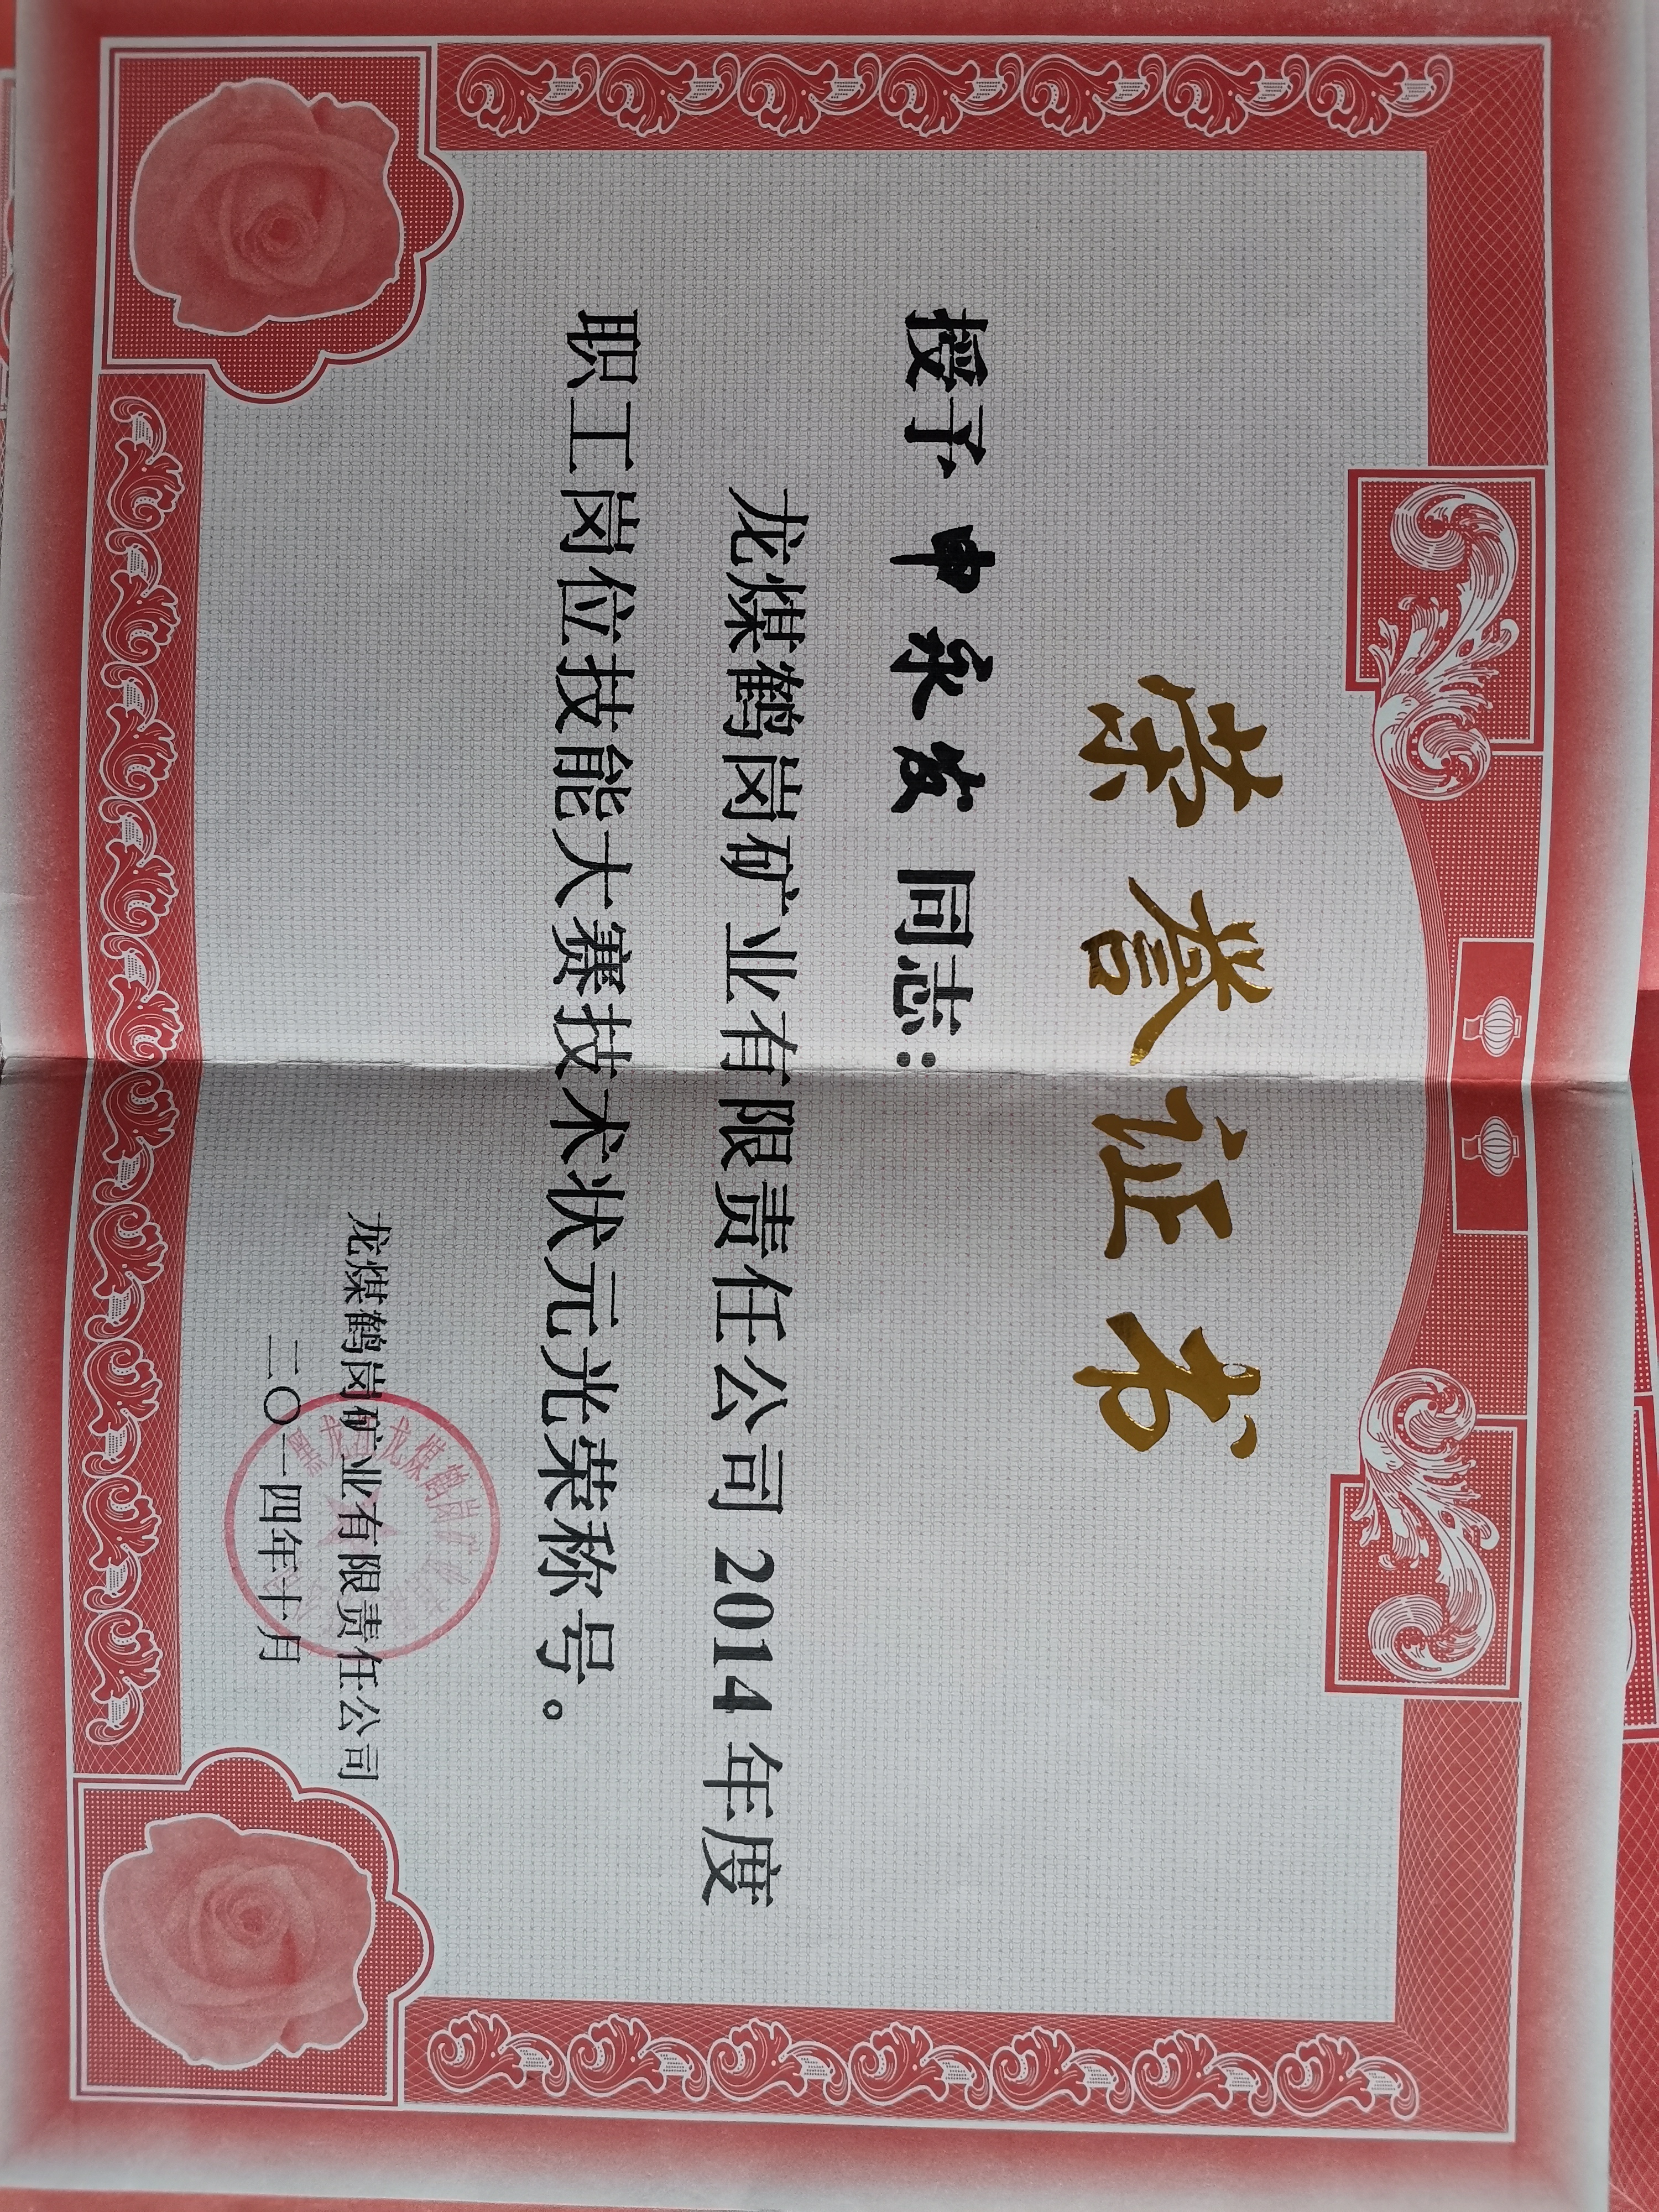 荣誉证书
授予 申永发 同志：
龙煤鹤岗矿业有限责任公司 2014 年度
职工岗位技能大赛技术状元光荣称号。
龙煤鹤岗矿业有限责任公司
二〇一四年十月